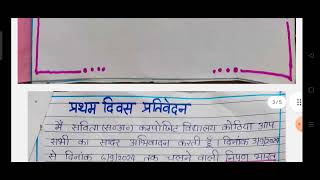 प्रथम दिवस प्रतिवेदन
3/5
मैं सविता (स०अ०) कम्पोजिट विद्यालय कोठिया आप
सभी का सादर अभिवादन करती हूँ। दिनांक
से दिनांक तक चलने वाली निपुण भारत